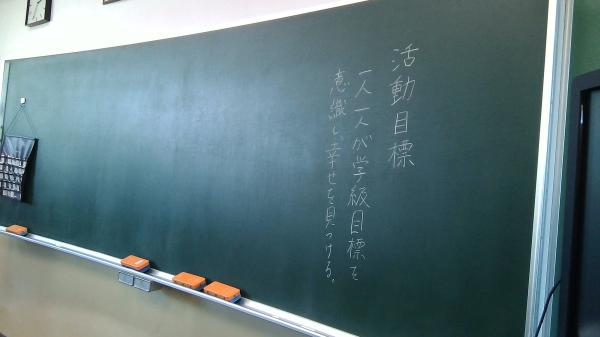 活動目標
一人一人が学級目標を
意識し、幸せを見つける。